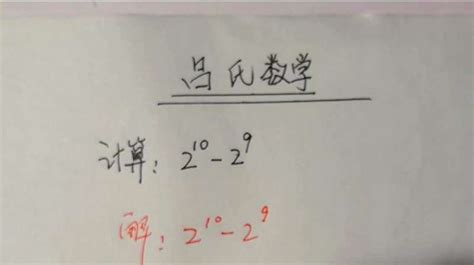 吕氏数学
计算：2¹⁰-2⁹
解：2¹⁰-2⁹